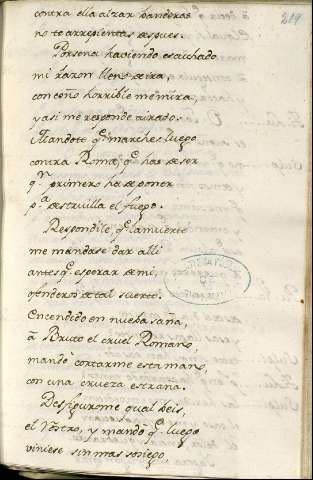 219
contra ella alzar banderas
no te arrepientas despues.
Porsena haviendo escuchado
mi razon lleno de ira,
con ceño horrible me mira,
y asi me responde airado.
Mandote q.e marches luego
contra Roma, q.e has de ser
q.n primero ha de poner
p.a destruilla el fuego.
Respondile, q.e la muerte
me mandase dar alli
antes q.e esperar de mi,
ofenderos de tal suerte.
Encendido en nueba saña,
à Bruto el cruel Romano,
mandò cortarme esta mano,
con una crueza estraña.
Desfigurome qual veis,
el Rostro, y mandò q.e luego
viniese sin mas sosiego